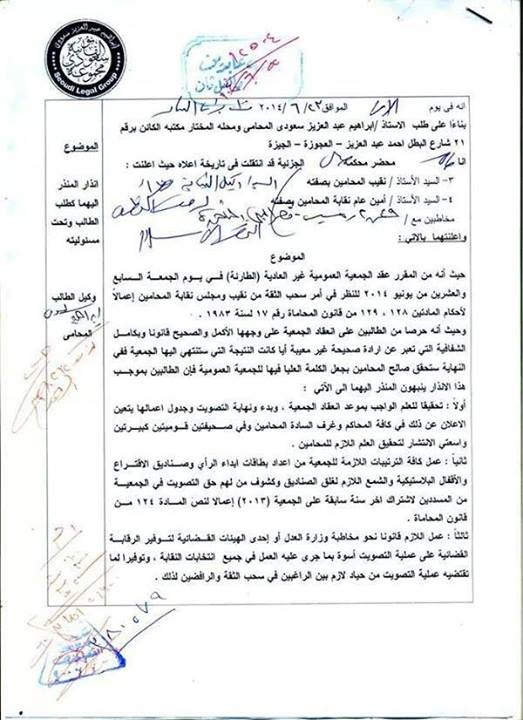 ابراهيم عبد العزيز سعودى
Seoudi Legal Group
انه فى يوم الموافق ٢٠١٤/٦/٢٣
بناءا على طلب الاستاذ /ابراهيم عبد العزيز سعودى المحامى ومحله المختار مكتبه الكائن برقم
٢١ شارع البطل احمد عبد العزيز – العجوزة – الجيزة
انا محضر محكمة الجزئية قد انتقلت فى تاريخة اعلاه حيث اعلنت :
٣- السيد الأستاذ / نقيب المحامين بصفته
٤ - السيد الأستاذ / أمين عام نقابة المحامين بصفته
مخاطبين مع /
واعلنتهما بالاتي :
الموضوع
انذار المنذر
اليهما كطلب
الطالب وتحت
مسئوليته
وكيل الطالب
المحامى
الموضوع
حيث أنه من المقرر عقد الجمعية العمومية غير العادية (الطارئة) في يوم الجمعة السابع
والعشرين من يونيو ٢٠١٤ للنظر في أمر سحب الثقة من نقيب ومجلس نقابة المحامين إعمالاً
لأحكام المادتين ١٢٨ ، ١٢٩ من قانون المحاماة رقم ١٧ لسنة ١٩٨٣ .
وحيث أنه حرصا من الطالبين على انعقاد الجمعية على وجهها الأكمل والصحيح قانونا وبكامل
الشفافية التي تعبر عن ارادة صحيحة غير معيبة أيا كانت النتيجة التي ستنتهي اليها الجمعة ففي
النهاية ستحقق صالح المحامين بجعل الكلمة العليا فيها للجمعية العمومية فإن الطالبين بموجب
هذا الانذار ينبهون المنذر اليهما الى الآتي :
أولاً : تحقيقا للعلم الواجب بموعد انعقاد الجمعية ، وبدء ونهاية التصويت وجدول اعمالها يتعين
الاعلان عن ذلك في كافة المحاكم وغرف السادة المحامين وفي صحيفتين قوميتين كبيرتين
واسعتي الانتشار لتحقيق العلم اللازم للمحامين .
ثانياً : عمل كافة الترتيبات اللازمة للجمعية من اعداد بطاقات ابداء الرأي وصناديق الاقتراع
والأقفال البلاستيكية والشمع اللازم لغلق الصناديق وكشوف من لهم حق التصويت في الجمعية
من المسددين لاشتراك اخر سنة سابقة على الجمعية (٢٠١٣) إعمالا لنص المادة ١٢٤ من
قانون المحاماة .
ثالثاً : عمل اللازم قانونا نحو مخاطبة وزارة العدل أو إحدى الهيئات القضائية لتوفير الرقابة
القضائية على عملية التصويت أسوة بما جرى عليه العمل في جميع انتخابات النقابة ، وتوفيرا لما
تقتضيه عملية التصويت من حياد لازم بين الراغبين في سحب الثقة والرافضين لذلك .